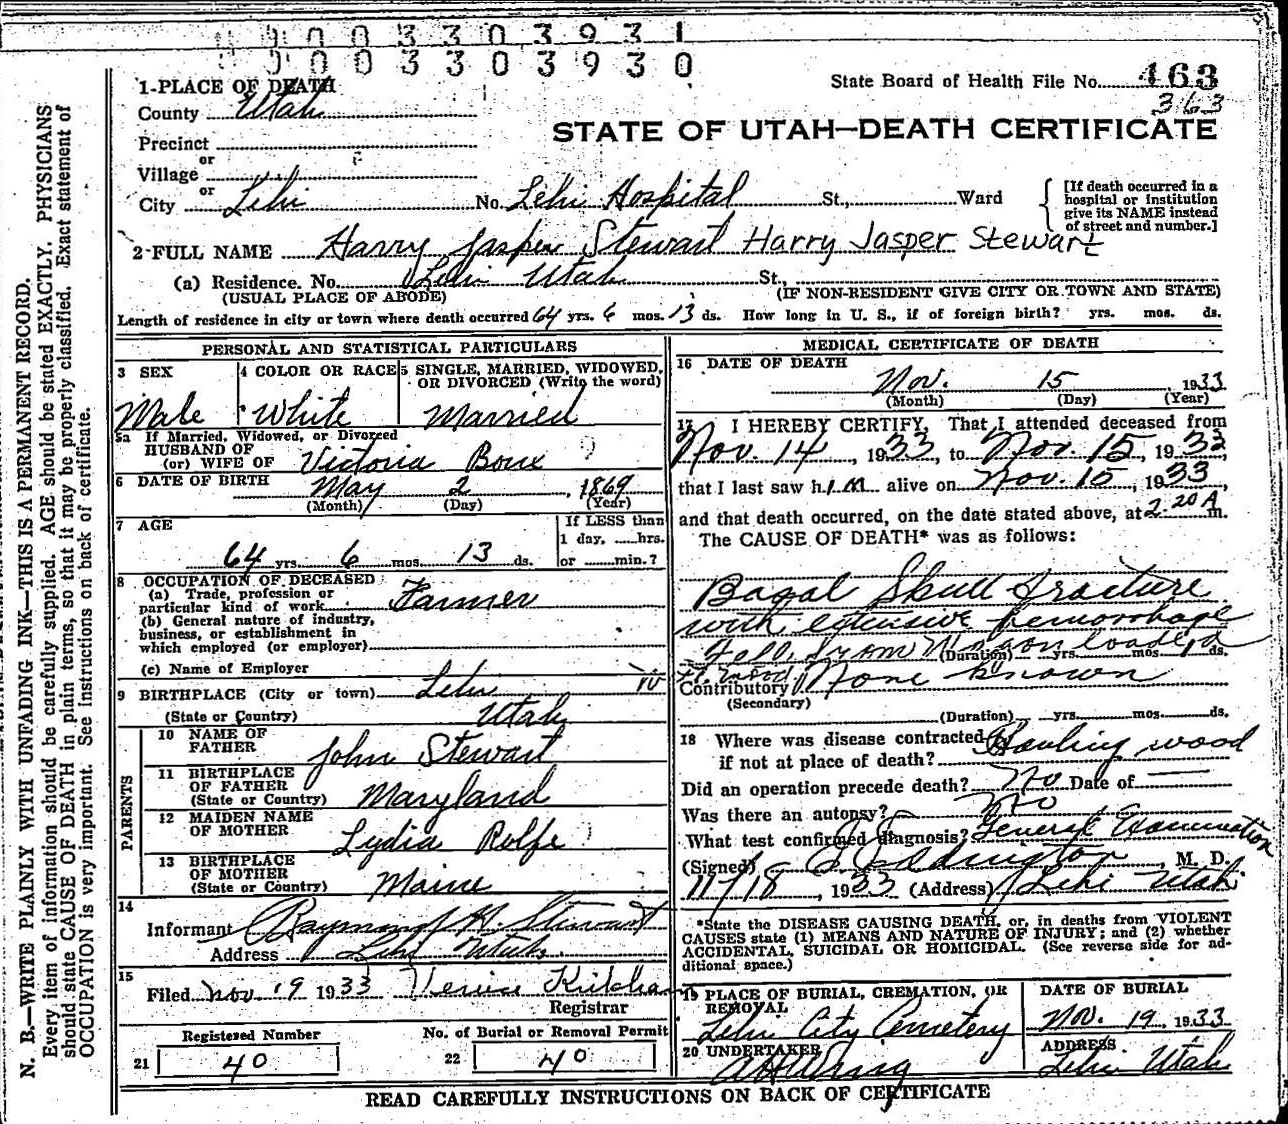 0 0 0 3 3 0 3 9 3 1
0 0 0 3 3 0 3 9 3 0
State Board of Health File No. 463
363
STATE OF UTAH—DEATH CERTIFICATE
1-PLACE OF DEATH
County Utah
Precinct
or
Village
or
City Lehi No. Lehi Hospital St., Ward
[If death occurred in a
hospital or institution
give its NAME instead
of street and number.]
2-FULL NAME Harry Jasper Stewart Harry Jasper Stewart
(a) Residence. No. Lehi Utah St.,
(USUAL PLACE OF ABODE) (IF NON-RESIDENT GIVE CITY OR TOWN AND STATE)
Length of residence in city or town where death occurred 64 yrs. 6 mos. 13 ds. How long in U. S., if of foreign birth? yrs. mos. ds.
PERSONAL AND STATISTICAL PARTICULARS
3 SEX
Male
4 COLOR OR RACE
White
5 SINGLE, MARRIED, WIDOWED,
OR DIVORCED (Write the word)
Married
5a If Married, Widowed, or Divorced
HUSBAND OF
(or) WIFE OF Victoria
6 DATE OF BIRTH May 2, 1869
(Month) (Day) (Year)
7 AGE
64 yrs. 6 mos. 13 ds.
If LESS than
1 day, ......hrs.
or ......min.?
8 OCCUPATION OF DECEASED
(a) Trade, profession or
particular kind of work Farmer
(b) General nature of industry,
business, or establishment in
which employed (or employer)
(c) Name of Employer
9 BIRTHPLACE (City or town) Lehi
(State or Country) Utah
PARENTS
10 NAME OF
FATHER John Stewart
11 BIRTHPLACE
OF FATHER
(State or Country) Maryland
12 MAIDEN NAME
OF MOTHER Lydia Rolfe
13 BIRTHPLACE
OF MOTHER
(State or Country) Maine
14
Informant Raymond H. Stewart
Address Lehi Utah.
15
Filed Nov 19 1933 Kirkham
Registrar
Registered Number
21 40
No. of Burial or Removal Permit
22 40
MEDICAL CERTIFICATE OF DEATH
16 DATE OF DEATH
Nov. 15, 1933
(Month) (Day) (Year)
17 I HEREBY CERTIFY, That I attended deceased from
Nov. 14, 1933, to Nov. 15, 1933,
that I last saw h im alive on Nov. 15, 1933,
and that death occurred, on the date stated above, at 2:20 A m.
The CAUSE OF DEATH* was as follows:
Basal Skull fracture
with extensive hemorrhage
Fell from Wagon loaded
(Duration) yrs. mos. ds.
Contributory None known
(Secondary)
(Duration) yrs. mos. ds.
18 Where was disease contracted
if not at place of death? Hauling wood
Did an operation precede death? No Date of —
Was there an autopsy? No
What test confirmed diagnosis? General Examination
(Signed) Eddington, M. D.
11/18, 1933 (Address) Lehi Utah
*State the DISEASE CAUSING DEATH, or, in deaths from VIOLENT
CAUSES state (1) MEANS AND NATURE OF INJURY; and (2) whether
ACCIDENTAL, SUICIDAL OR HOMICIDAL. (See reverse side for ad-
ditional space.)
19 PLACE OF BURIAL, CREMATION, OR
REMOVAL
Lehi City Cemetery
DATE OF BURIAL
Nov. 19, 1933
20 UNDERTAKER
ADDRESS
Lehi Utah
READ CAREFULLY INSTRUCTIONS ON BACK OF CERTIFICATE
N. B.—WRITE PLAINLY WITH UNFADING INK—THIS IS A PERMANENT RECORD.
Every item of information should be carefully supplied. AGE should be stated EXACTLY. PHYSICIANS
should state CAUSE OF DEATH in plain terms, so that it may be properly classified. Exact statement of
OCCUPATION is very important. See instructions on back of certificate.